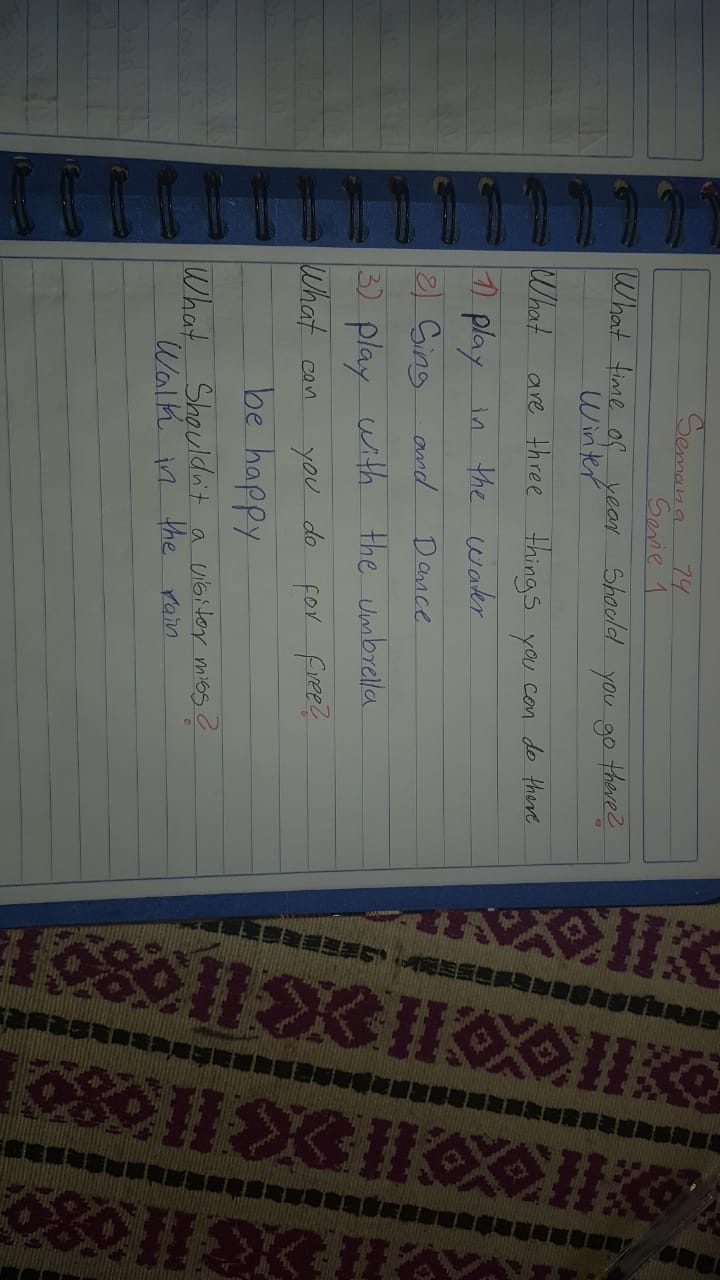 Semana 14
Serie 1
What time of year should you go there?
Winter
What are three things you can do there
1) play in the water
2) Sing and Dance
3) play with the umbrella
What can you do for free?
be happy
What Shouldn't a visitor miss?
Walk in the rain